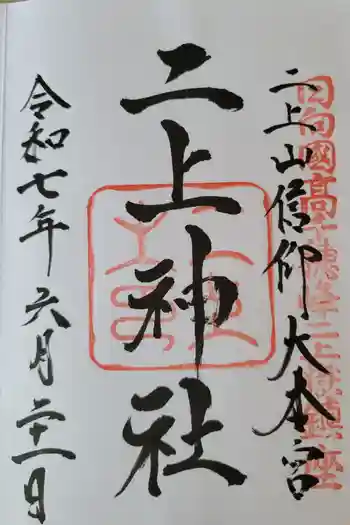 日向國高千穂峰二上鎮座
二上山信仰大本宮
二上神社
令和七年六月二十一日